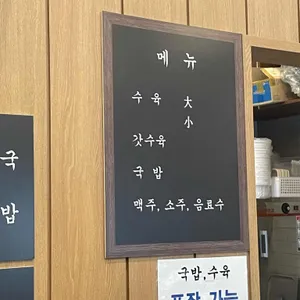 메 뉴
수 육 大
小
갓수육
국 밥
맥주, 소주, 음료수
국
밥
국밥, 수육
포장 가능